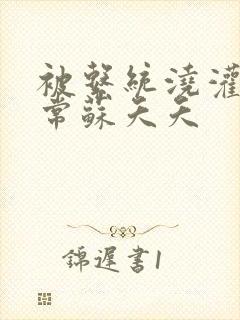 被繫統澆灌
常蘇夭夭
錦遲書1